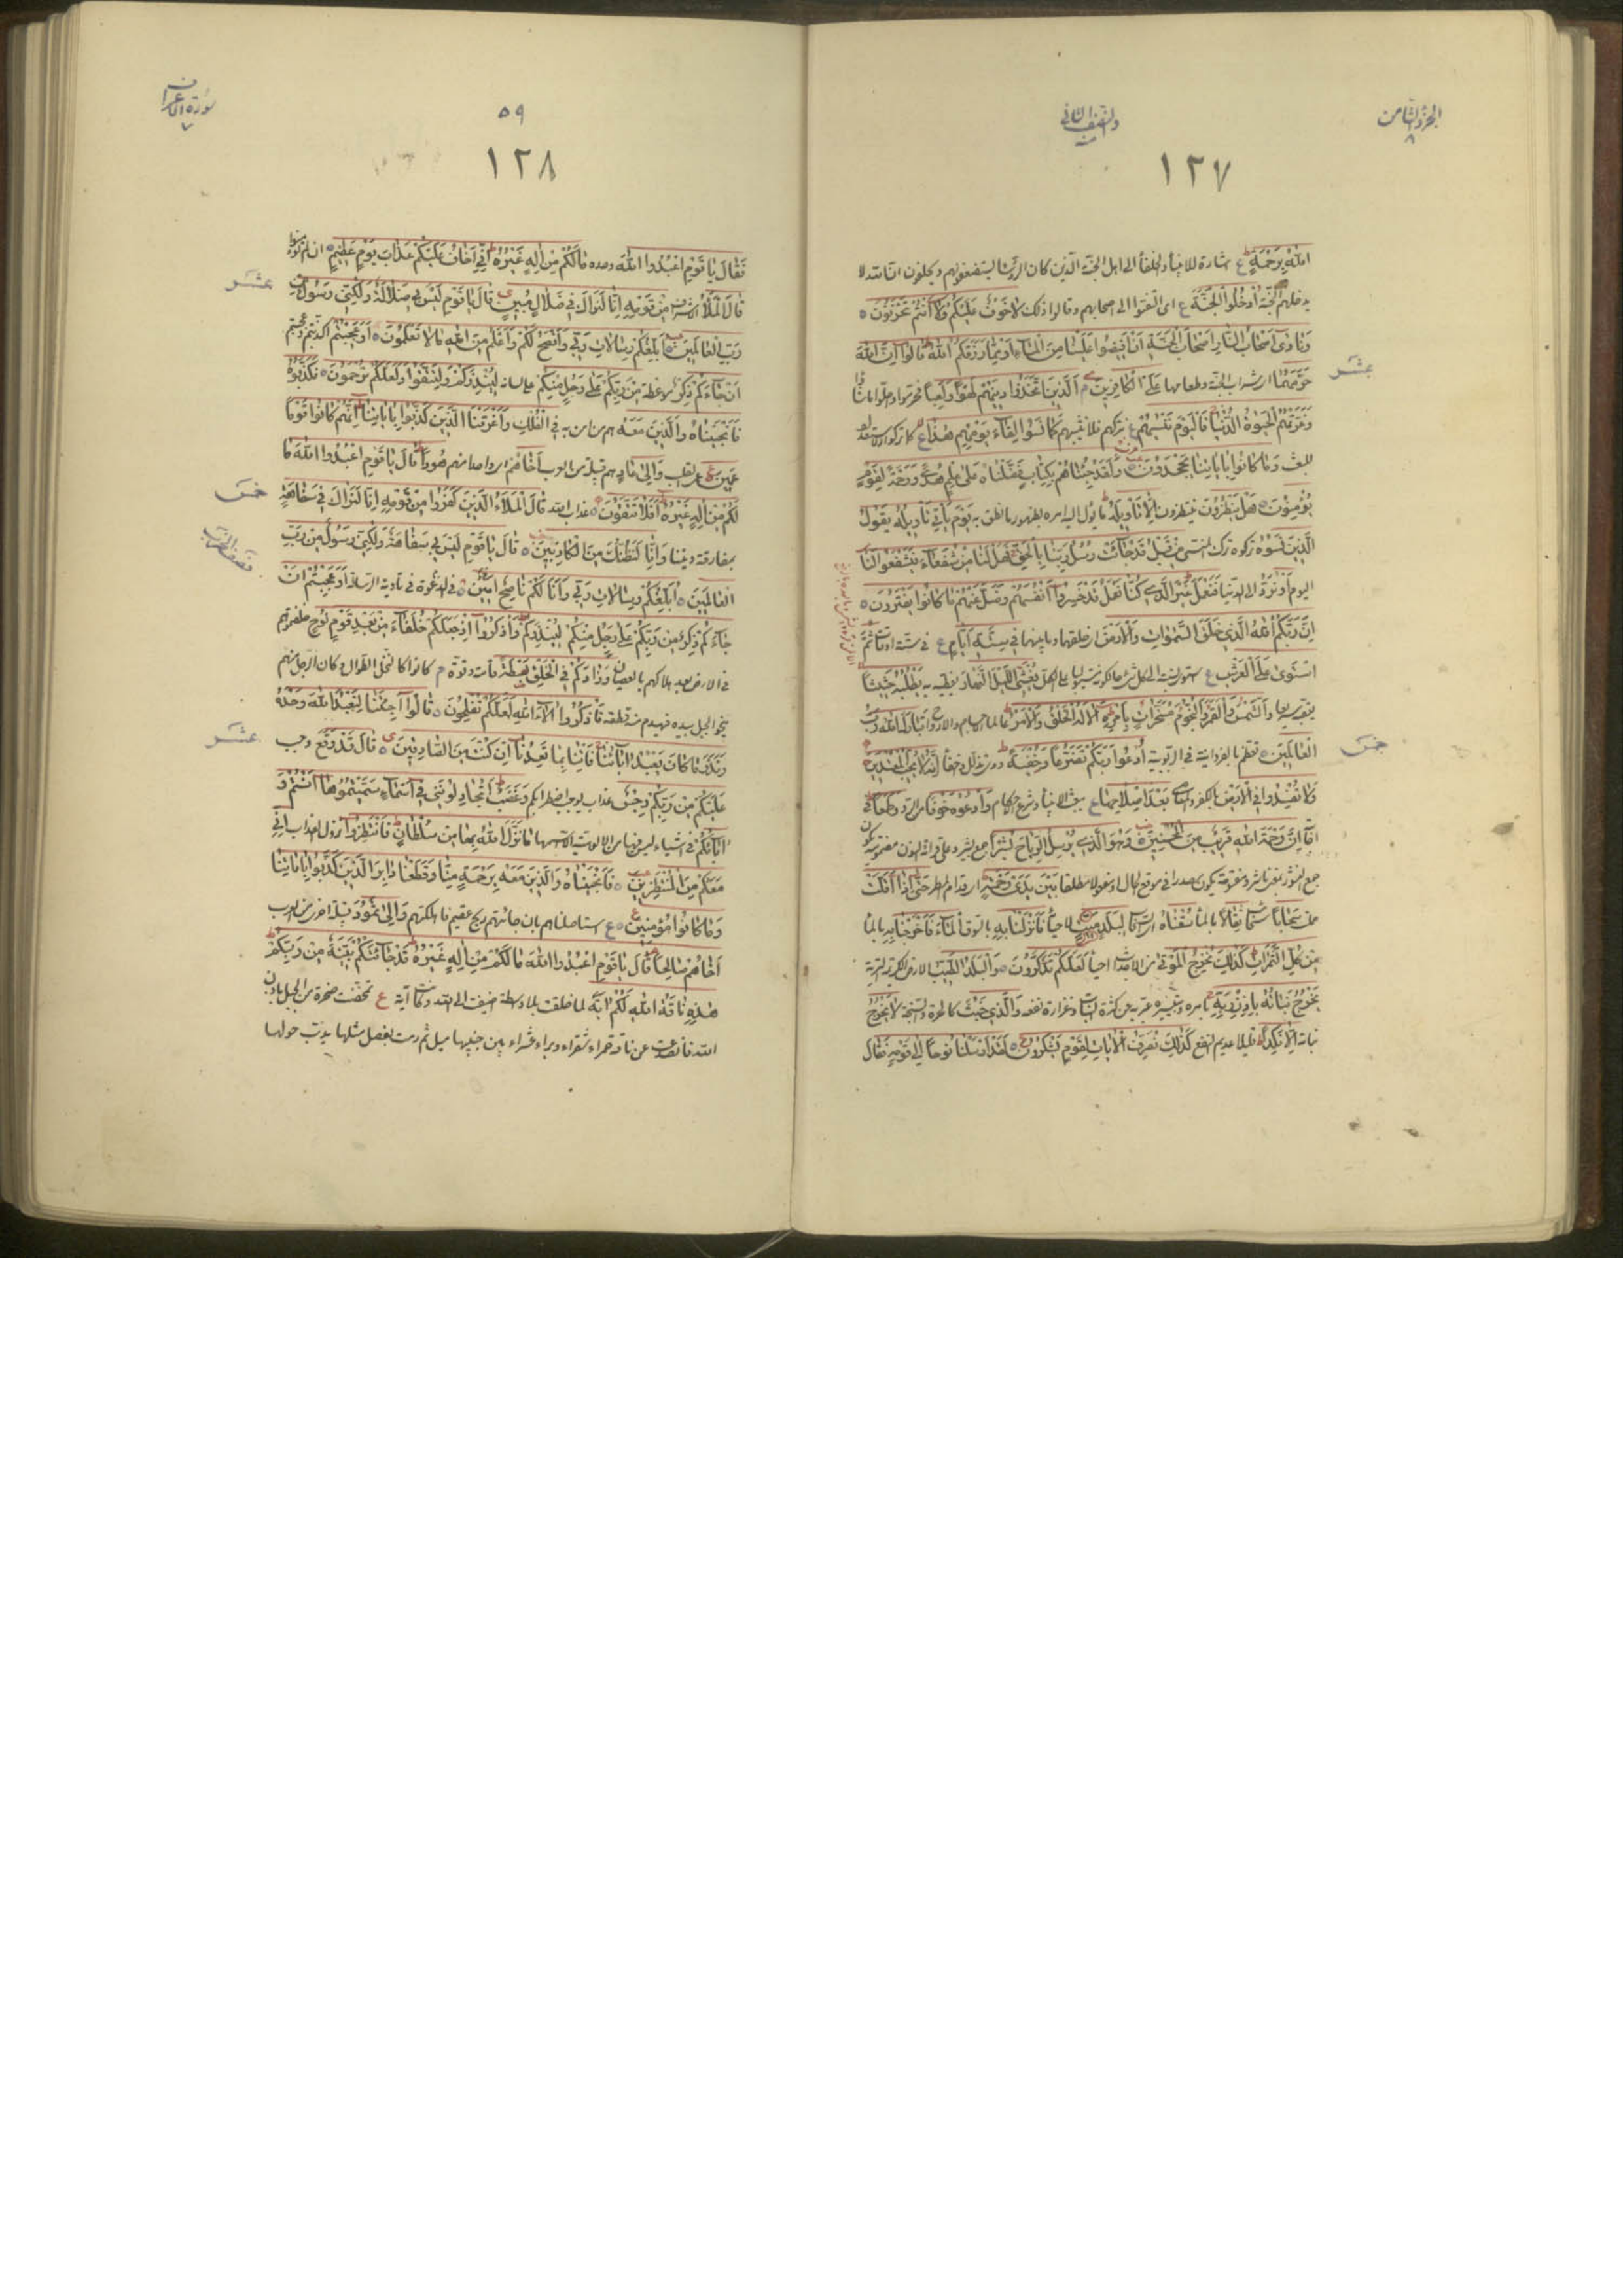 الجزء الثامن
٨
والنصف الثاني
١٢٧
الله برحمة ع اشارة للانبياء والخلفاء الى اهل الجنة الذين كان الرؤساء يستضعفونهم ويحلفون ان الله لا
يدخلهم الجنة ادخلوا الجنة ع اى التفتوا الى اصحابهم وقالوا ذلك لا خوف عليكم ولا انتم تحزنون
ونادى اصحاب النار اصحاب الجنة ان افيضوا علينا من الماء او مما رزقكم الله قالوا ان الله
حرمهما اى شراب الجنة وطعامها على الكافرين م الذين اتخذوا دينهم لهوا ولعبا فحرموا وحلوا ما شاؤا
وغرتهم الحيوة الدنيا فاليوم ننسيهم ع نتركهم فلا نثيبهم كما نسوا لقاء يومهم هذا ع كما تركوا
وما كانوا باياتنا يجحدون ولقد جئناهم بكتاب فصلناه على علم هدى ورحمة لقوم
يؤمنون هل ينظرون ينتظرون الا تاويله ما يؤل اليه امره بظهور ما نطق به يوم ياتي تاويله يقول
الذين نسوه تركوه ترك المنسى من قبل قد جاءت رسل ربنا بالحق فهل لنا من شفعاء فيشفعوا لنا
اليوم او نرد الى الدنيا فنعمل غير الذي كنا نعمل قد خسروا انفسهم وضل عنهم ما كانوا يفترون
ان ربكم الله الذي خلق السموات والارض اى خلقهما وما بينهما في ستة ايام ع فى ستة اوقات ثم
استوى على العرش ع على الكل يغشي الليل النهار يغطيه به يطلبه حثيثا
يعقبه سريعا والشمس والقمر والنجوم مسخرات بامره الا له الخلق والامر عالما الاجسام والارواح تبارك الله رب
العالمين تعظم بالفردانية فى الربوبية ادعوا ربكم تضرعا وخفية انه لا يحب المعتدين
ولا تفسدوا في الارض بالكفر والمعاصى بعد اصلاحها ع ببعث الانبياء وشرع الاحكام وادعوه خوفا من الرد وطمعا فى
ان رحمة الله قريب من المحسنين وهو الذي يرسل الرياح بشرا جمع بشير وعلى قراءة النون مضمومة يكون
جمع النشور بمعنى ناشر ومفتوحة يكون مصدرا فى موقع الحال او مفعولا مطلقا بين يدي رحمته اى قدام المطر حتى اذا اقلت
حملت سحابا ثقالا بالماء سقناه لبلد ميت لاحيائه فانزلنا به الماء فاخرجنا به بالماء
من كل الثمرات كذلك نخرج الموتى من الاجداث احياء لعلكم تذكرون والبلد الطيب الارض الكريم التربة
يخرج نباته باذن ربه بامره وتيسيره عبر به عن كثرة النبات وغزارة نفعه والذي خبث كالحرة والسبخة لا يخرج
نباته الا نكدا قليلا عديم النفع كذلك نصرف الايات لقوم يشكرون لقد ارسلنا نوحا الى قومه فقال
عشر
خمس
سورة الاعراف
٧
٥٩
١٢٨
فقال يا قوم اعبدوا الله وحده ما لكم من اله غيره اني اخاف عليكم عذاب يوم عظيم ان لم تؤمنوا
قال الملأ الاشراف من قومه انا لنراك في ضلال مبين قال يا قوم ليس بي ضلالة ولكني رسول من
رب العالمين ابلغكم رسالات ربي وانصح لكم واعلم من الله ما لا تعلمون اوعجبتم اكذبتم وعجبتم
ان جاءكم ذكر موعظة من ربكم على رجل منكم على لسانه لينذركم ولتتقوا ولعلكم ترحمون فكذبوه
فانجيناه والذين معه هم من امن به في الفلك واغرقنا الذين كذبوا باياتنا انهم كانوا قوما
عمين عمى القلب والى عاد هم قبيلة من العرب اخاهم اى واحدا منهم هودا قال يا قوم اعبدوا الله ما
لكم من اله غيره افلا تتقون عذاب الله قال الملأ الذين كفروا من قومه انا لنراك في سفاهة
بمفارقة ديننا وانا لنظنك من الكاذبين قال يا قوم ليس بي سفاهة ولكني رسول من رب
العالمين ابلغكم رسالات ربي وانا لكم ناصح امين فى الدعوة فى تادية الرسالة اوعجبتم ان
جاءكم ذكر من ربكم على رجل منكم لينذركم واذكروا اذ جعلكم خلفاء من بعد قوم نوح خلفتموهم
فى الارض بعد هلاكهم بالعصيان وزادكم في الخلق بصطة قامة وقوة م كانوا كالنخل الطوال وكان الرجل منهم
ينحو الجبل بيده فيهدم منه قطعة فاذكروا الاء الله لعلكم تفلحون قالوا اجئتنا لنعبد الله وحده
ونذر ما كان يعبد اباؤنا فاتنا بما تعدنا ان كنت من الصادقين قال قد وقع وجب
عليكم من ربكم رجس عذاب وغضب اتجادلونني في اسماء سميتموها انتم و
اباؤكم فى اشياء ليس فيها من الالوهية الا اسمها ما نزل الله بها من سلطان فانتظروا نزول العذاب اني
معكم من المنتظرين فانجيناه والذين معه برحمة منا وقطعنا دابر الذين كذبوا باياتنا
وما كانوا مؤمنين ع استاصلناهم بان جائتهم ريح عقيم فاهلكتهم والى ثمود قبيلة اخرى من العرب
اخاهم صالحا قال يا قوم اعبدوا الله ما لكم من اله غيره قد جاءتكم بينة من ربكم
هذه ناقة الله لكم اية لما خلقت بلا واسطة اضيفت الى الله وكانت آية ع تمخضت صخرة من الجبل باذن
الله فانصدعت عن ناقة حمراء شقراء وبراء عشراء بين جنبيها ميل ثم رمت بفصيل مثلها يدب حولها
عشر
خمس
عشر